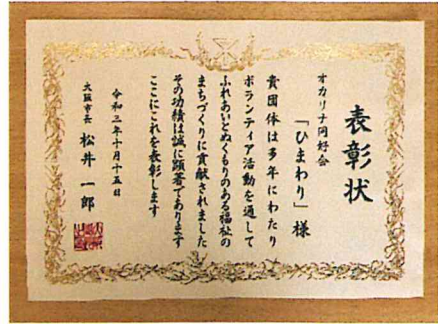 表彰状
オカリナ同好会
「ひまわり」様
貴団体は多年にわたり
ボランティア活動を通して
ふれあいとぬくもりのある福祉の
まちづくりに貢献されました
その功績は誠に顕著であります
ここにこれを表彰します
令和三年十月十五日
大阪市長 松井一郎